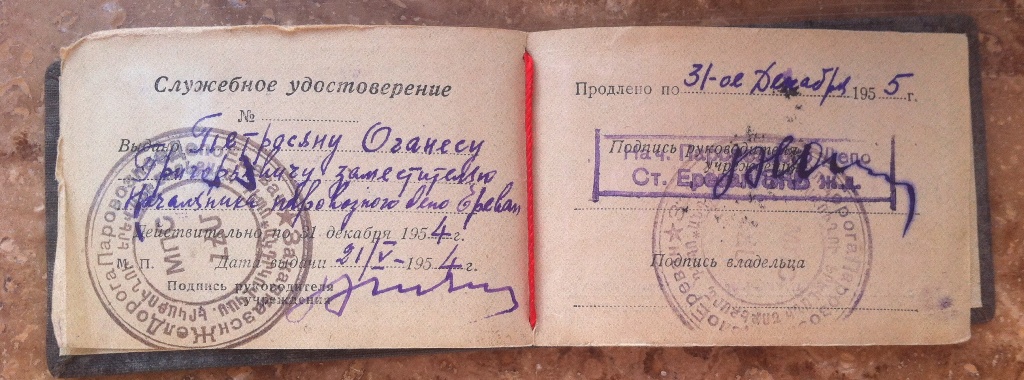 Служебное удостоверение
№
Выдано Петросяну Оганесу
Григорьевичу заместителю
Начальника паровозного депо Ереван
Действительно по 31 декабря 1954 г.
М. П. Дата выдачи 21/V- 1954 г.
Подпись руководителя
учреждения
МПС
Продлено по 31-ое Декабря 1955 г.
Подпись руководителя
учреждения
Нач. Депо
Ст. Ереван ж.д.
Подпись владельца